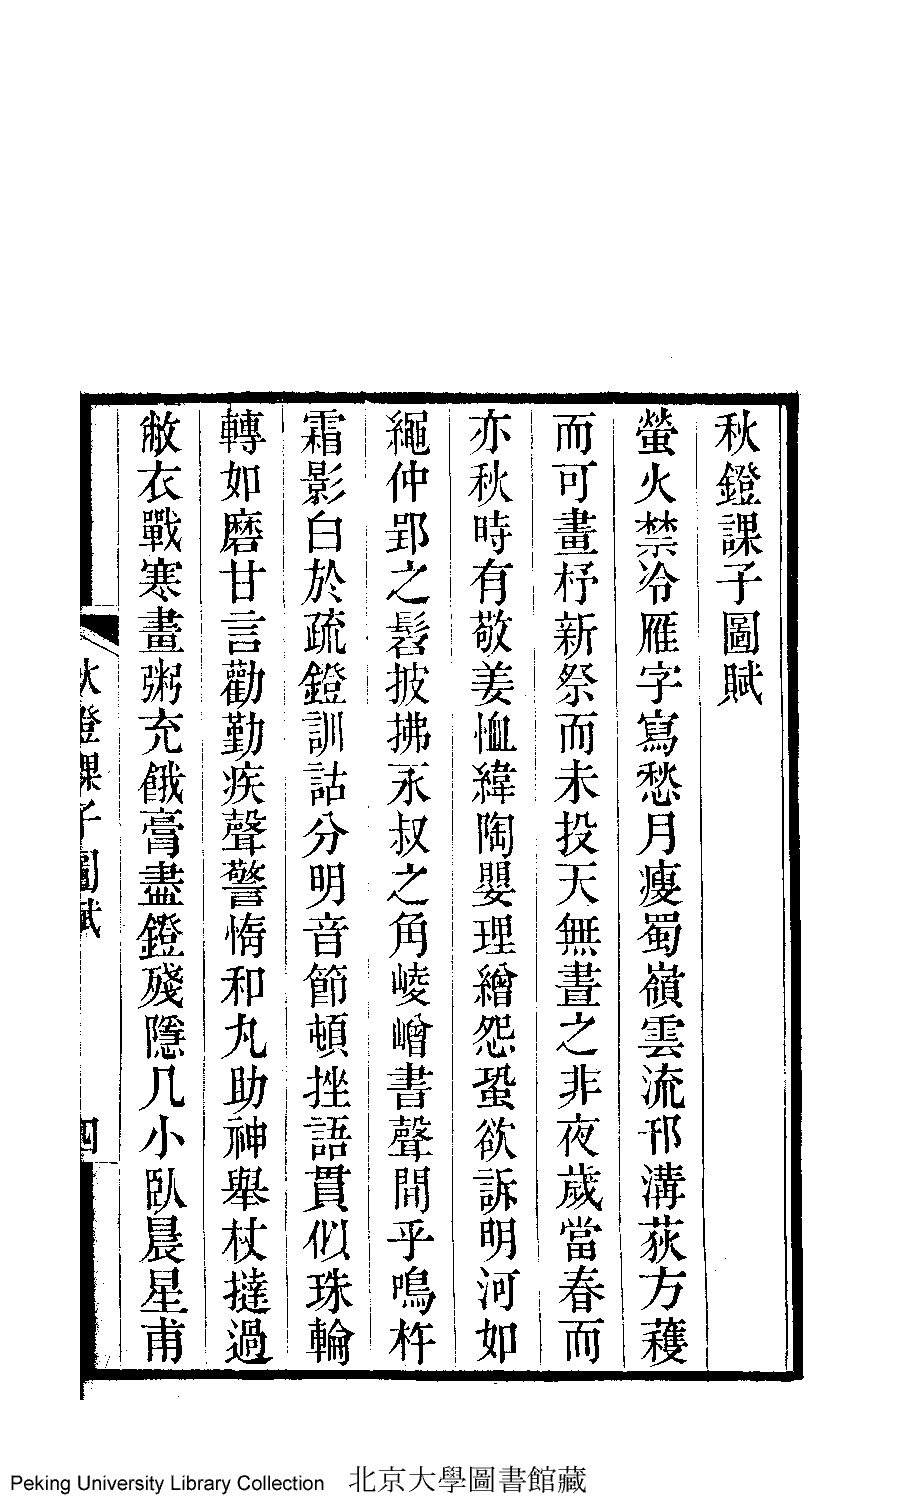 秋鐙課子圖賦
螢火禁冷雁字寫愁月瘦蜀嶺雲流邗溝荻方蘀
而可畫杼新祭而未投天無晝之非夜歲當春而
亦秋時有敬姜恤緯陶嬰理繒怨蛩欲訴明河如
繩仲郢之髫披拂永叔之角崚嶒書聲間乎鳴杵
霜影白於疏鐙訓詁分明音節頓挫語貫似珠輪
轉如磨甘言勸勤疾聲警惰和丸助神舉杖撻過
敝衣戰寒畫粥充餓膏盡鐙殘隱几小臥晨星甫
秋鐙課子圖賦
四
Peking University Library Collection 北京大學圖書館藏